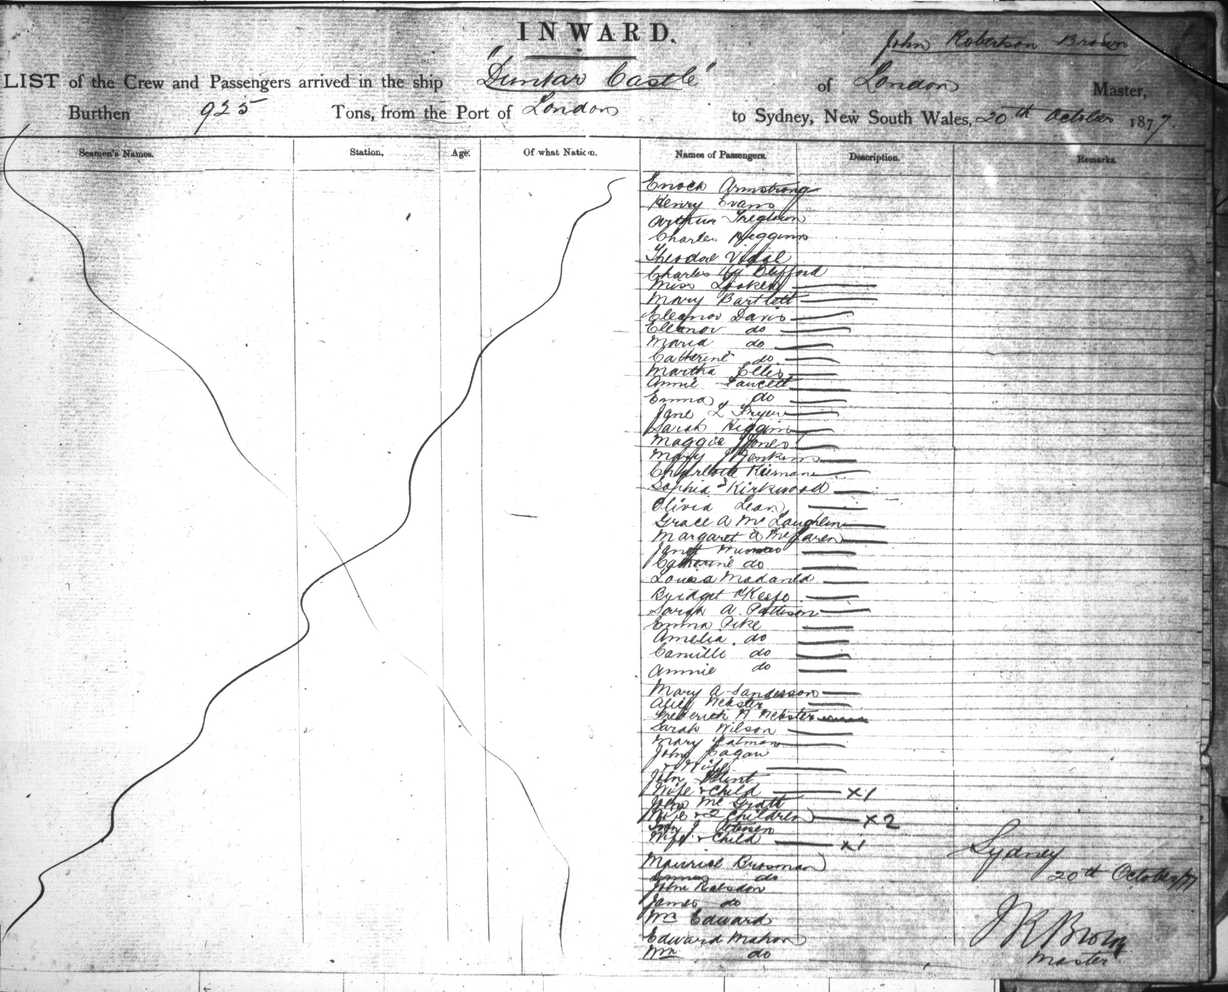 INWARD.
John Robertson Brown
LIST of the Crew and Passengers arrived in the ship "Dunbar Castle" of London Master,
Burthen 925 Tons, from the Port of London to Sydney, New South Wales, 20th October 1877
Seamen's Names. Station. Age. Of what Nation. Names of Passengers. Description. Remarks.
Enoch Armstrong
Henry Evans
Arthur
Charles Higgins
Theodore Vidal
Charles Clifford
Miss
Mary Bartlett
Eleanor Davis
Eleanor do
Maria do
Catherine do
Martha Ellis
Annie Faucett
Emma do
Jane L Fryer
Sarah Higgins
Maggie Jones
Mary J Jenkins
Charlotte
Sophia Kirkwood
Olivia Lean
Grace A McLaughlin
Margaret A McLaren
Janet Munro
Catherine do
Louisa
Bridget O'Keefe
Sarah A. Pattison
Emma Pike
Amelia do
Camille do
Annie do
Mary A Sanderson
Alice Webster
Frederick W Webster
Sarah Wilson
Mary
John Eagan
& Wife
John Flint
Wife & Child x1
John McGrath
Wife & 2 Children x2
J
Wife & Child x1
Maurice Brosman
do
John Ralsdon
James do
Mr Edward
Edward Mahon
Mr do
Sydney
20th October/77
JRBrown
Master